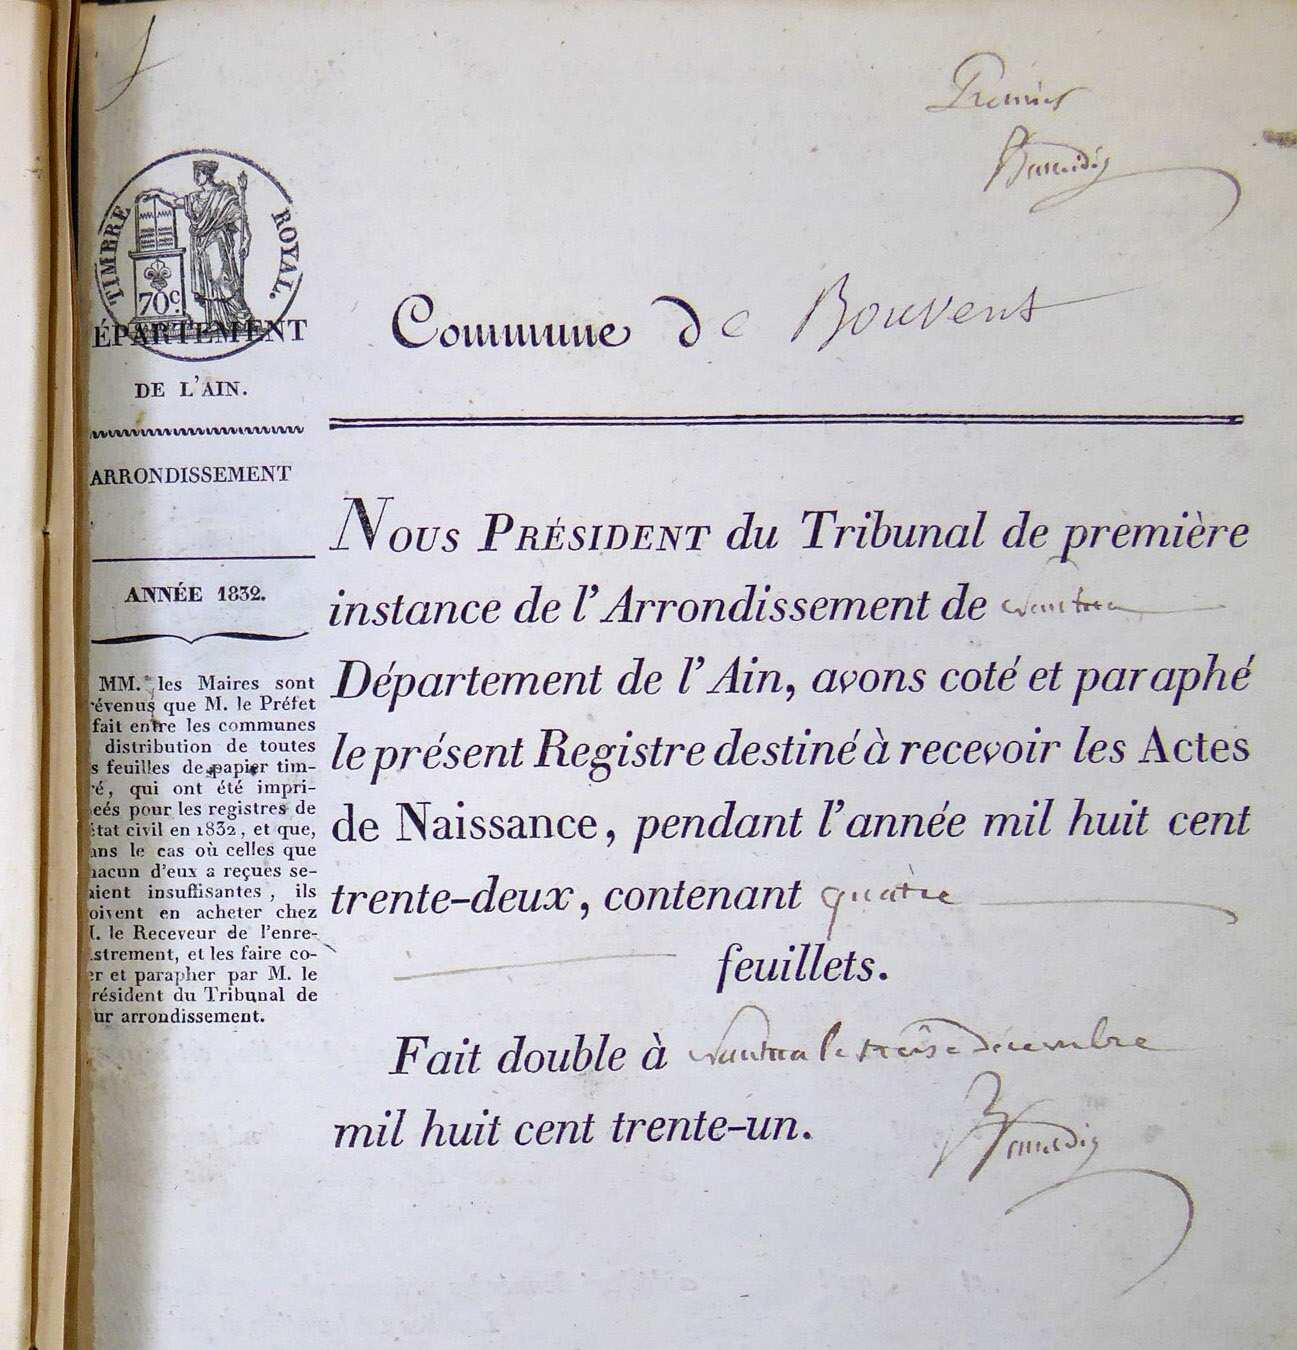 Premier
TIMBRE ROYAL.
70c.
Commune de Bouvent
ÉPARTEMENT
DE L'AIN.
ARRONDISSEMENT
ANNÉE 1832.
MM. les Maires sont
révenus que M. le Préfet
fait entre les communes
distribution de toutes
s feuilles de papier tim-
ré, qui ont été impri-
eés pour les registres de
état civil en 1832, et que,
ans le cas où celles que
hacun d'eux a reçues se-
aient insuffisantes, ils
oivent en acheter chez
M. le Receveur de l'enre-
istrement, et les faire co-
er et parapher par M. le
résident du Tribunal de
ur arrondissement.
NOUS PRÉSIDENT du Tribunal de première
instance de l'Arrondissement de nantua
Département de l'Ain, avons coté et paraphé
le présent Registre destiné à recevoir les Actes
de Naissance, pendant l'année mil huit cent
trente-deux, contenant quatre
feuillets.
Fait double à nantua le treise décembre
mil huit cent trente-un.